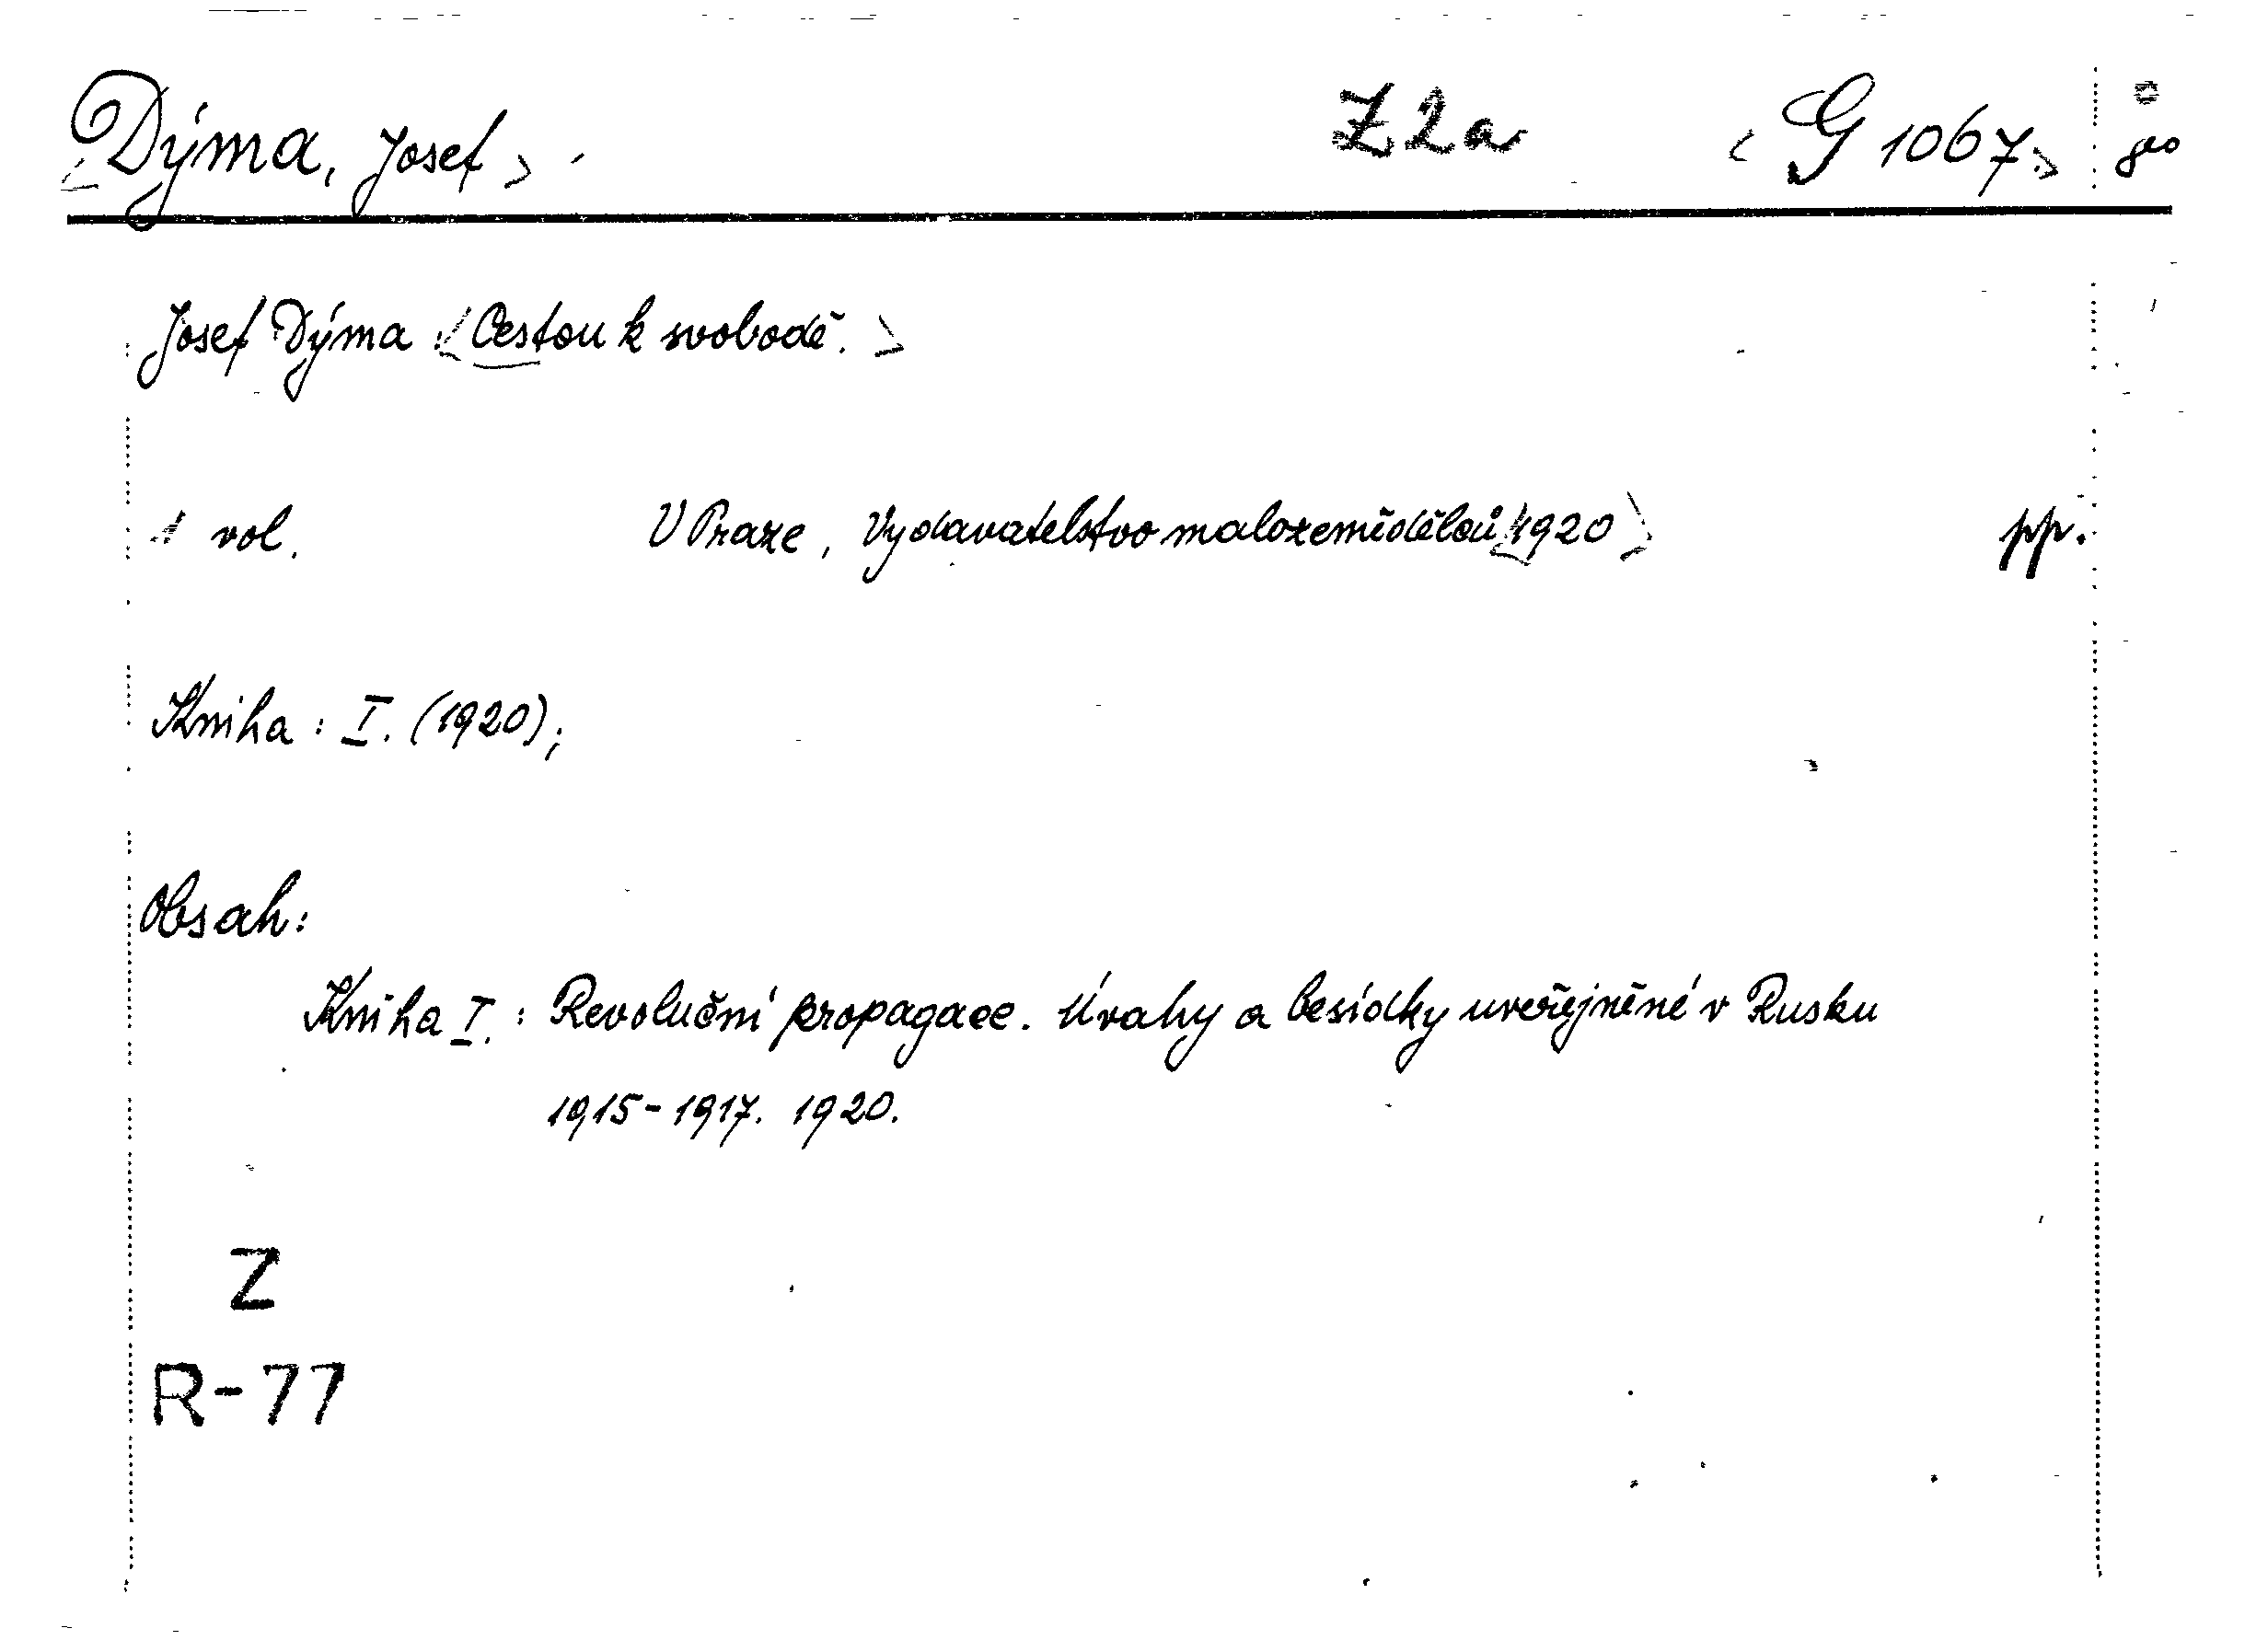 <Dýma, Josef> Z2a <G 1067>
Josef Dýma: <Cestou k svobodě.>
1 vol. V Praze, Vydavatelstvo malozemědělců <1920> pp.
Kniha: I. (1920);
Obsah:
Kniha I.: Revoluční propagace. Úvahy a besídky uveřejněné v Rusku
1915-1917. 1920.
Z
R-77